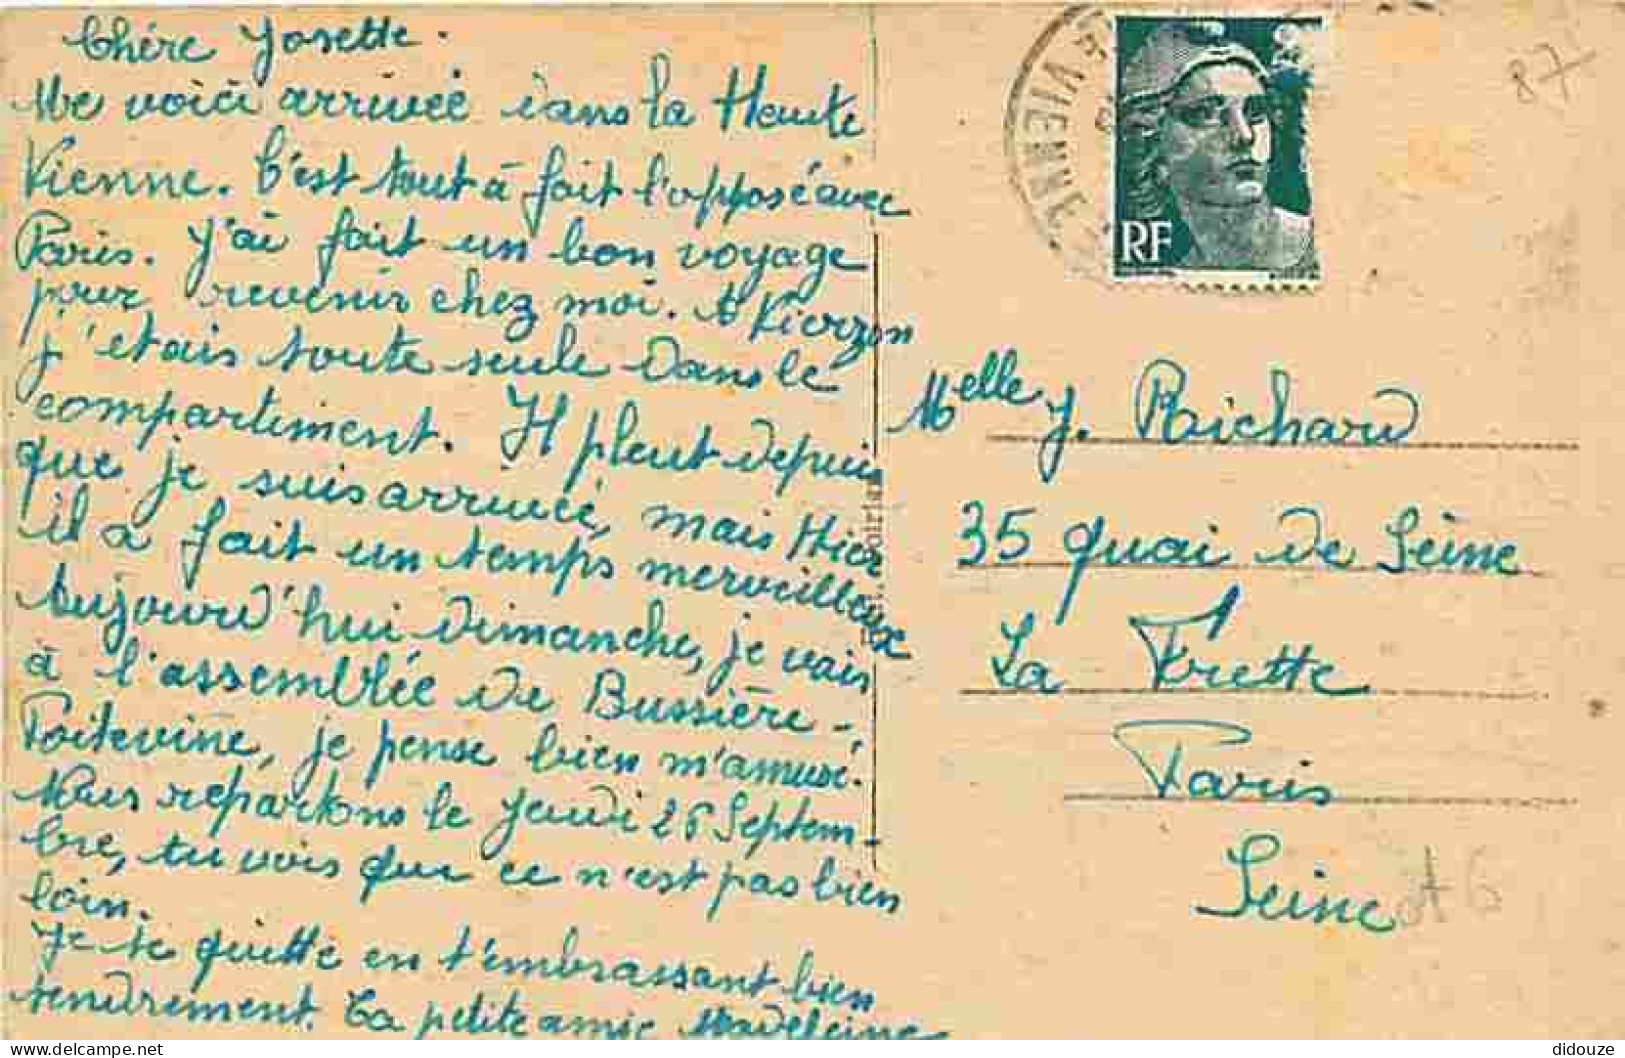 Chère Josette.
Me voici arrivée dans la Haute
Vienne. C'est tout à fait l'opposé avec
Paris. J'ai fait un bon voyage
pour revenir chez moi. A Vierzon
j'étais toute seule dans le
compartiment. Il pleut depuis
que je suis arrivée, mais Hier
il a fait un temps merveilleux
Aujourd'hui dimanche, je vais
à l'assemblée de Bussière-
Poitevine, je pense bien m'amusé.
Nous repartons le jeudi 26 Septem-
bre, tu vois que ce n'est pas bien
loin.
Je te quitte en t'embrassant bien
tendrement. Ta petite amie Madeleine
VIENNE
RF
87
Melle J. Richard
35 quai de Seine
La Frette
Paris
Seine
didouze
delcampe.net